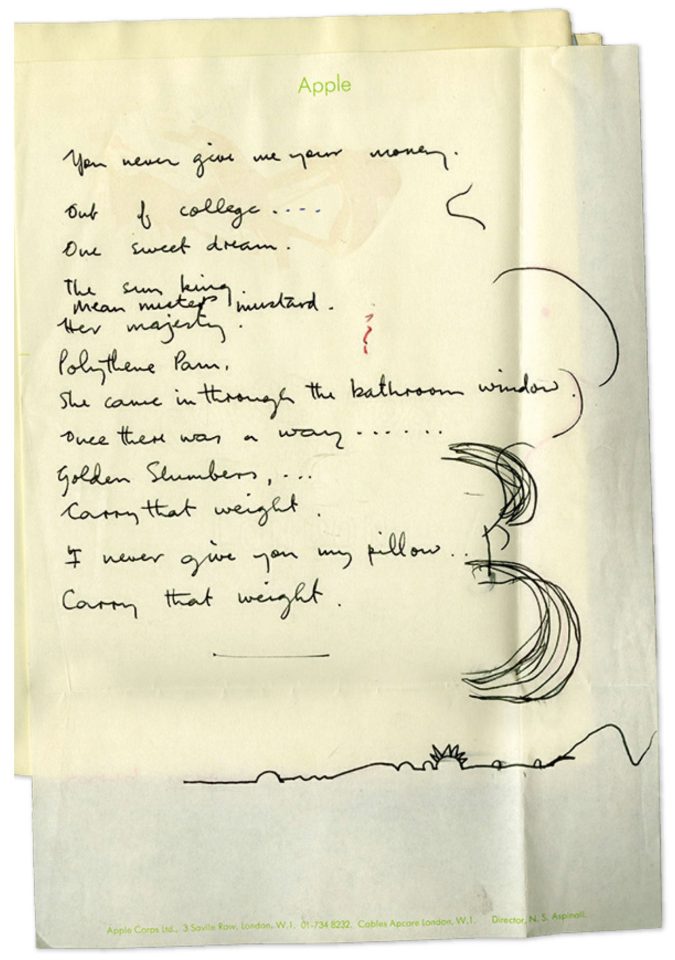 Apple
You never give me your money.
Out of college....
One sweet dream.
The sun king.
Mean mister mustard.
Her majesty.
Polythene Pam.
She came in through the bathroom window.
Once there was a way......
Golden Slumbers,...
Carry that weight.
I never give you my pillow..
Carry that weight.
Apple Corps Ltd., 3 Savile Row, London, W.1. 01-734 8232. Cables Apcore London, W.1. Director, N. S. Aspinall.